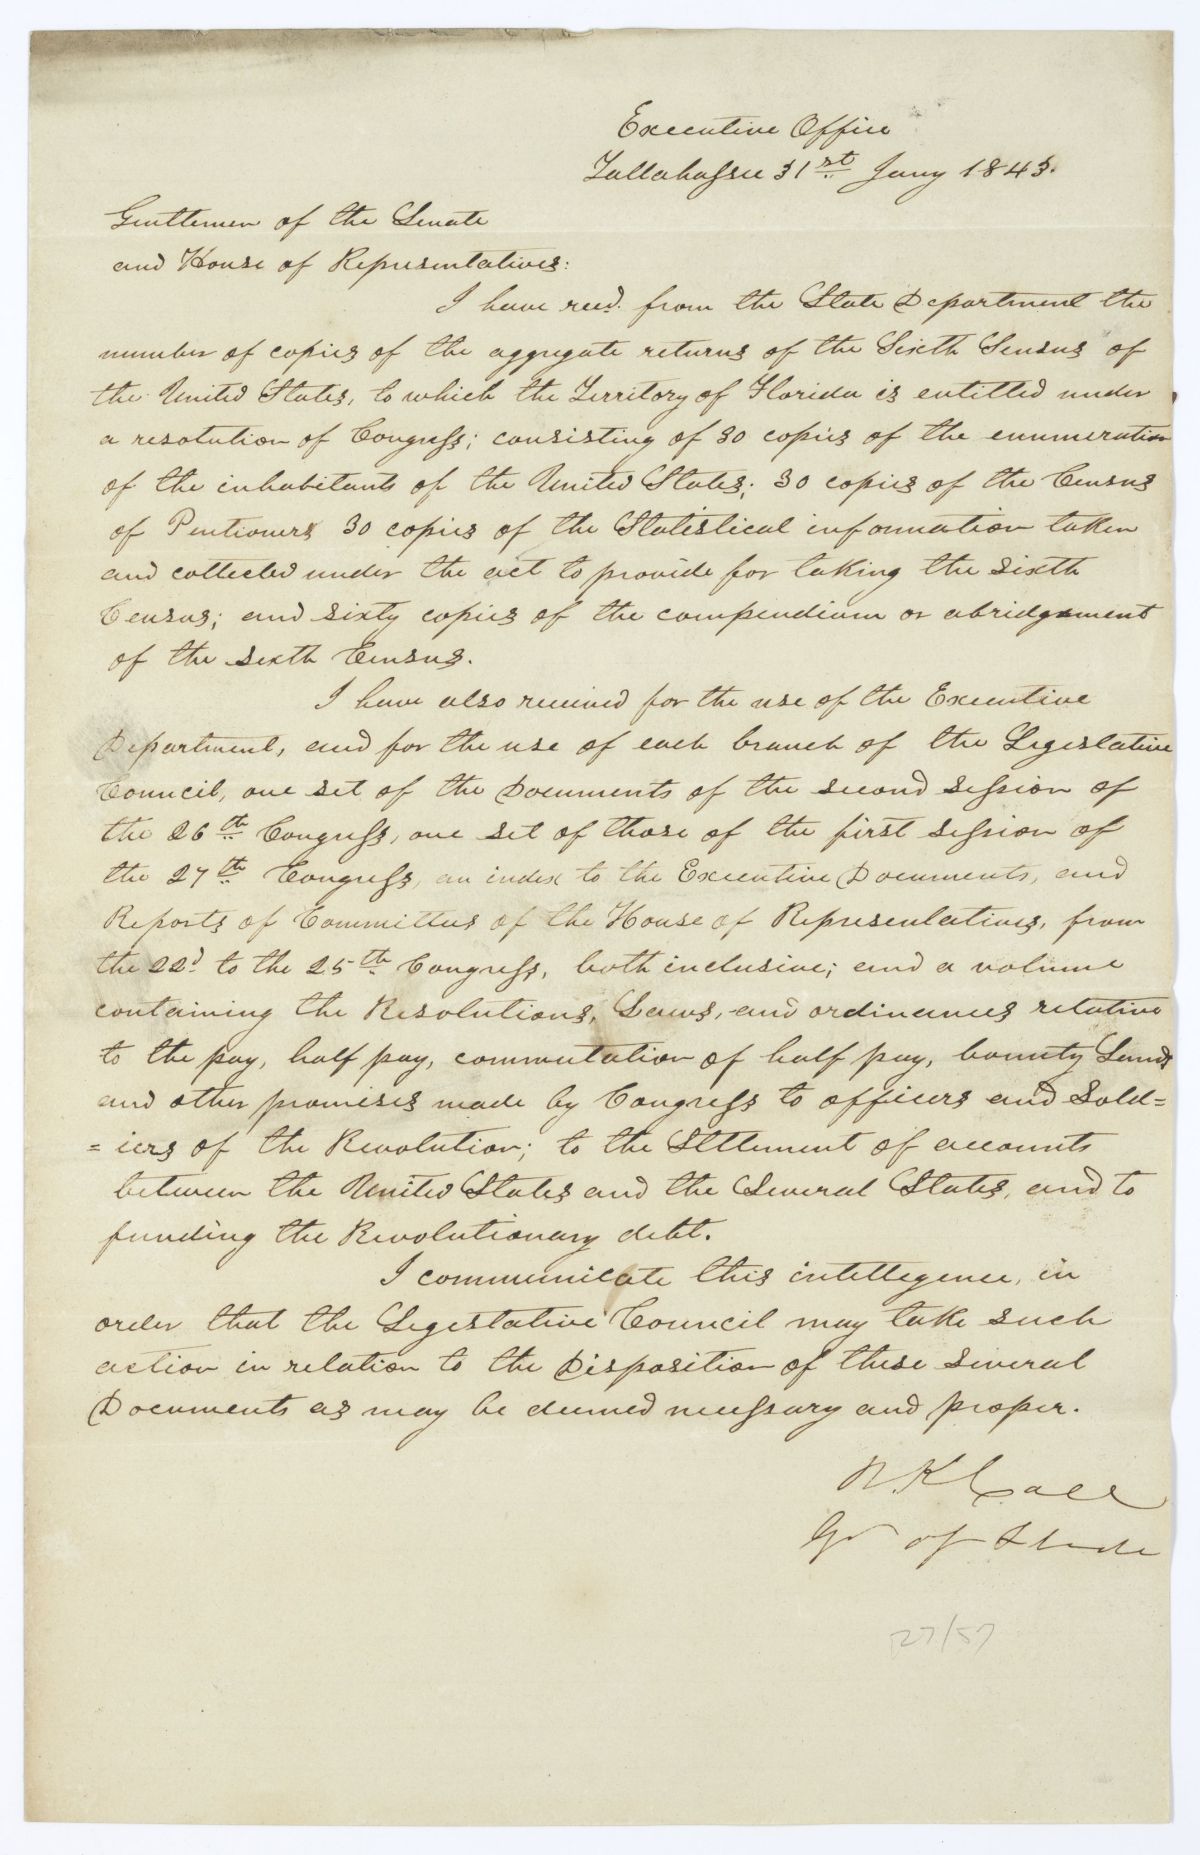 Executive Office
Tallahassee 31st Jany 1843.
Gentlemen of the Senate
and House of Representatives:
I have recd. from the State Department the
number of copies of the aggregate returns of the Sixth Sensus of
the United States, to which the Territory of Florida is entitled under
a resolution of Congress; consisting of 30 copies of the enumeration
of the inhabitants of the United States; 30 copies of the Census
of Pentioners 30 copies of the Statistical information taken
and collected under the act to provide for taking the sixth
Census; and sixty copies of the compendium or abridgement
of the sixth Census.
I have also received for the use of the Executive
Department, and for the use of each branch of the Legislative
Council, one set of the Documents of the second session of
the 26th Congress, one set of those of the first session of
the 27th Congress, an index to the Executive Documents, and
Reports of Committees of the House of Representatives, from
the 22d to the 25th Congress, both inclusive; and a volume
containing the Resolutions, Laws, and ordinances relative
to the pay, half pay, commutation of half pay, bounty Lands
and other promises made by Congress to officers and Sold=
=iers of the Revolution; to the Settlement of accounts
between the United States and the Several States, and to
funding the Revolutionary debt.
I communicate this intellegence, in
order that the Legislative Council may take such
action in relation to the Disposition of these several
Documents as may be deemed necessary and proper.
R. K Call
Gov of Florida
27/57